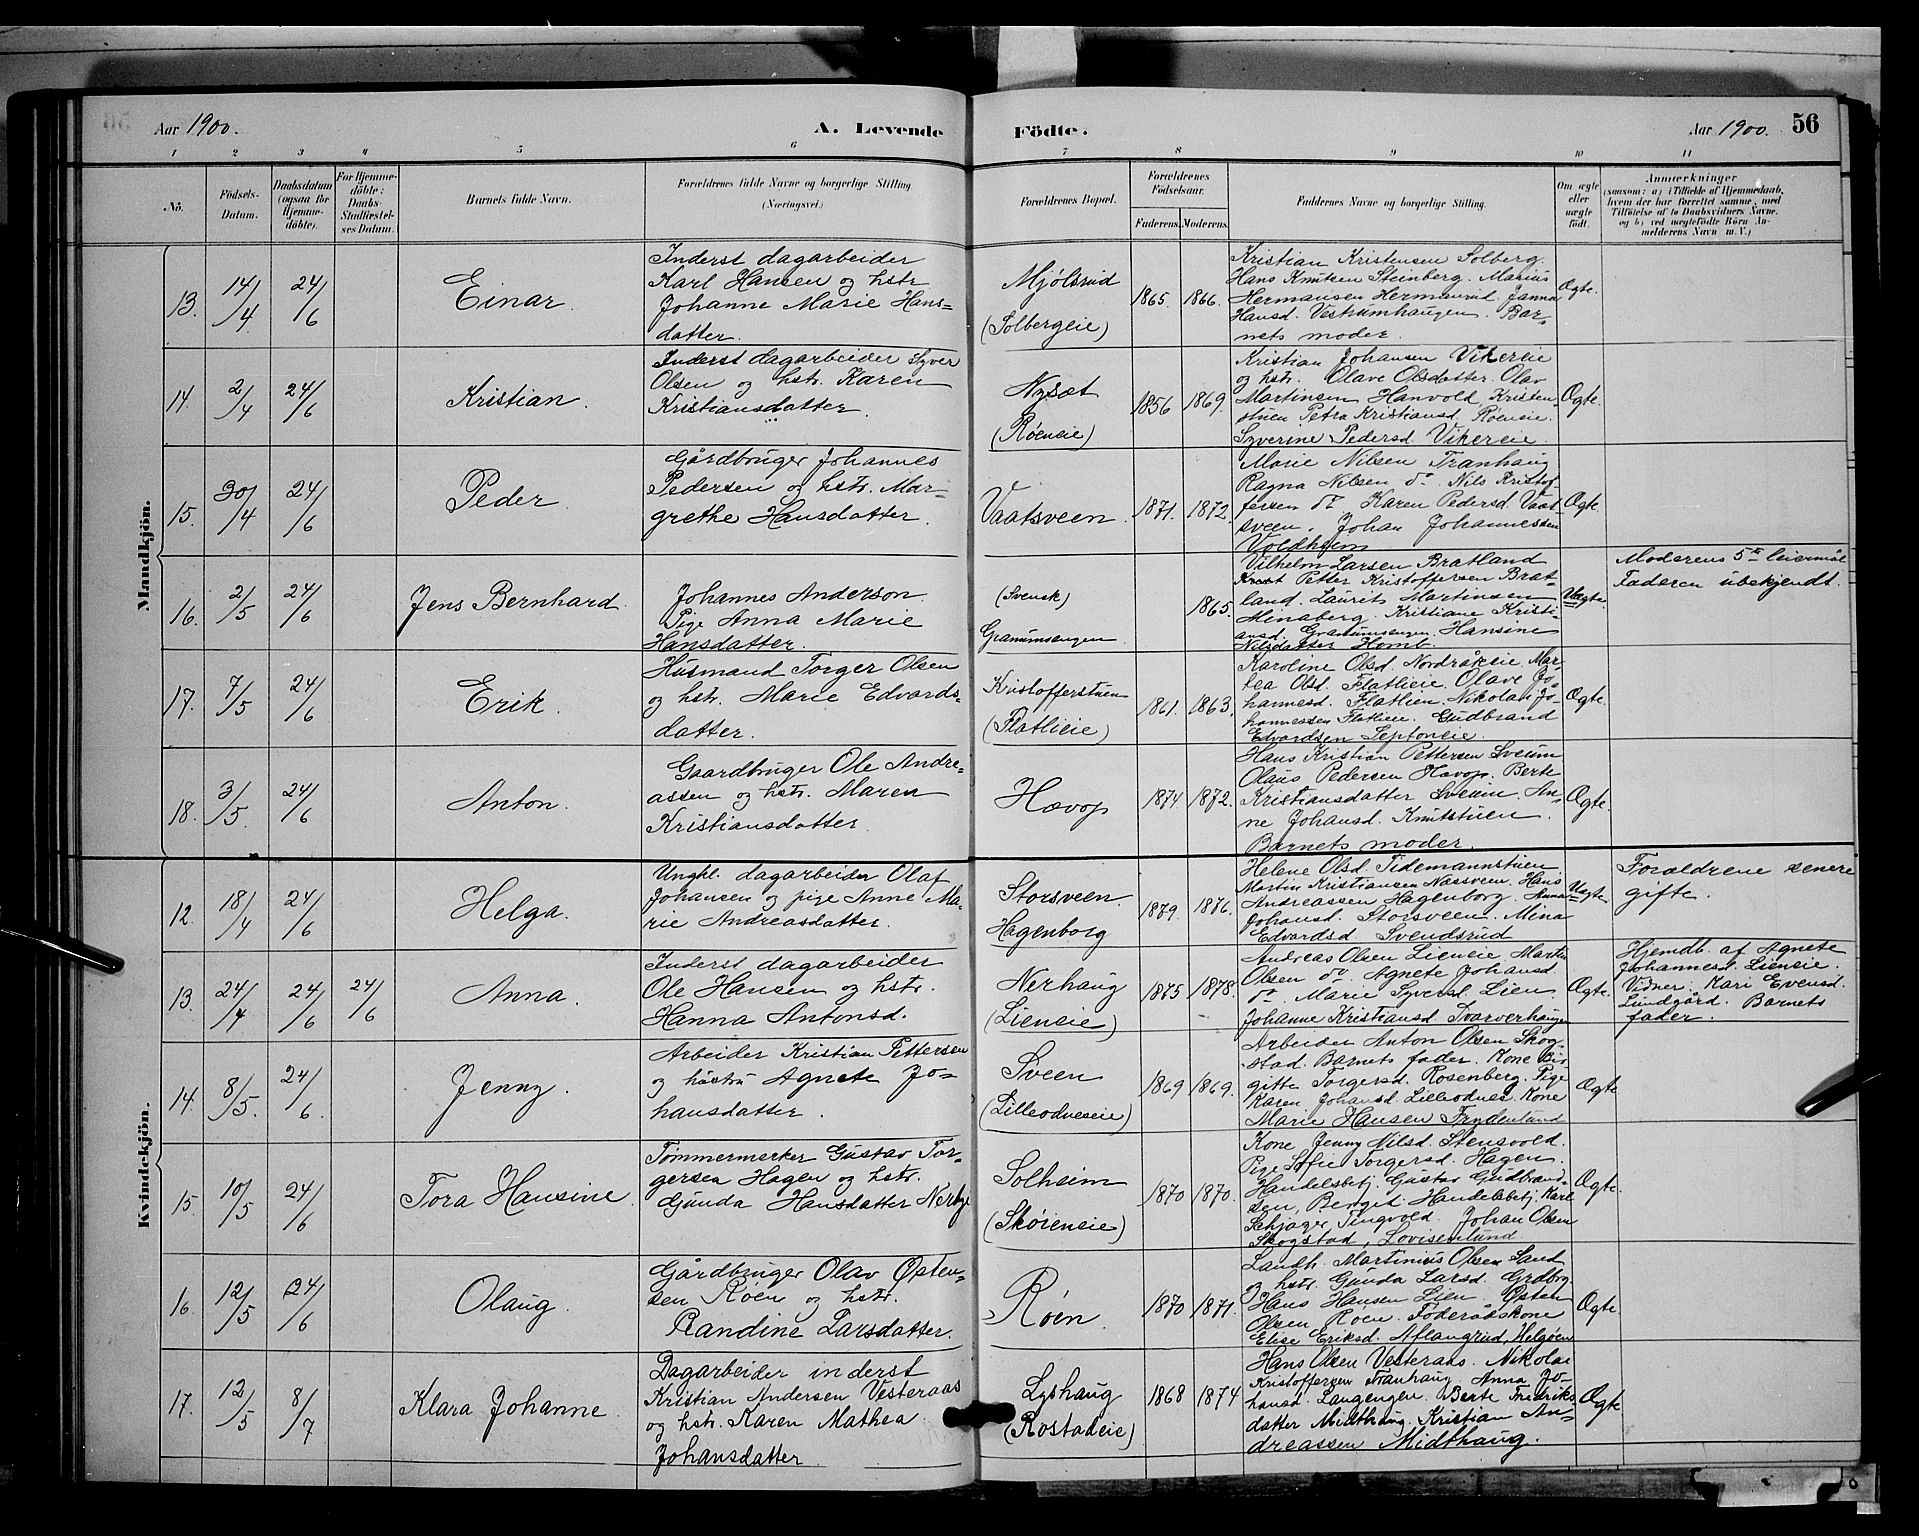 Aar 1900.
A. Levende
Födte.
Aar 1900. 56
1 2 3 4 5 6 7 8 9 10 11
No.
Födsels-
Datum.
Daabsdatum
(ogsaa for
Hjemme-
döbte).
For Hjemme-
döbte:
Daabs-
Stadfæstel-
ses Datum.
Barnets fulde Navn.
Forældrenes fulde Navne og borgerlige Stilling
(Næringsvei.)
Forældrenes Bopæl.
Forældrenes
Födselsaar.
Faderens. Moderens.
Faddernes Navne og borgerlige Stilling.
Om ægte
eller
uægte
födt.
Anmærkninger
(saasom: a) i Tilfælde af Hjemmedaab,
hvem der har forrettet samme, med
Tilföielse af to Daabsvidners Navne,
og b) ved uægtefödte Börn An-
melderens Navn m. V.)
Mandkjön.
13. 14/4 24/6
Einar.
Inderst dagarbeider
Karl Hansen og hstr
Johanne Marie Hans-
datter.
Mjölsrud
(Solbergeie)
1865. 1866.
Kristian Kristensen Solberg.
Hans Knutsen Steinberg. Marius
Hermansen Hermansrud. Janna
Hansd. Vestrumhaugen. Bar-
nets moder.
Ægte.
14. 2/4 24/6
Kristian.
Inderst dagarbeider Syver
Olsen og hstr. Karen
Kristiansdatter.
Nysæt
(Röeneie)
1856 1869.
Kristian Johansen Vikereie
og hstr. Olave Olsdatter. Olav
Martinsen Hanvold. Kristen-
stuen Petra Kristiansd. Röeneie.
Syverine Pedersd Vikereie.
Ægte.
15. 30/4 24/6
Peder
Gårdbruger Johannes
Pedersen og hstr. Mar-
grethe Hansdatter.
Vaatsveen.
1871. 1872.
Marie Nilsen Tranhaug
Ragna Nilsen do Nils Kristof-
fersen do Karen Pedersd Vaat-
sveen. Johan Johannessen
Voldheim
Ægte.
16. 2/5 24/6
Jens Bernhard.
Johannes Anderson.
Pige Anna Marie
Hansdatter.
(Svensk)
Granumsengen.
1865.
Vilhelm Larsen Bratland
Petter Kristoffersen Brat-
land. Laurits Martinsen
Minaberg. Kristiane Kristi-
ansd. Granumsengen. Hansine
Nilsdatter Homb.
Uægte.
Moderens 5te leiermål
Faderen ubekjendt.
17. 7/5 24/6
Erik.
Husmand Torger Olsen
og hstr. Marie Edvards-
datter.
Kristofferstuen
(Flatlieie)
1861. 1863.
Karoline Olsd. Nordråkeie. Mar-
tea Olsd. Flatlieie. Olave Jo-
hannesd. Flatlien. Nikolai Jo-
hannessen Flatlieie. Gudbrand
Edvardsen Septoneie.
Ægte.
18. 3/5. 24/6
Anton.
Gaardbruger Ole Andre-
assen og hstr. Maren
Kristiansdatter.
Hævop
1874 1872.
Hans Kristian Pettersen Sveum
Olaus Pedersen Hævop. Berte
Kristiansdatter Sveum. An-
ne Johansd. Knutstuen.
Barnets moder.
Ægte.
Kvindekjön.
12. 18/4 24/6
Helga.
Ungkl. dagarbeider Olaf
Johansen og pige Anne Ma-
rie Andreasdatter.
Storsveen
Hagenborg
1879. 1876.
Helene Olsd Tidemannstuen
Martin Kristiansen Næssveen. Hans
Andreassen Hagenborg. Anna
Johansd. Storsveen. Mina
Edvardsd. Svendsrud
Uægte.
Forældrene senere
gifte.
13. 24/4 24/6 24/6
Anna.
Inderst dagarbeider
Ole Hansen og hstr.
Hanna Antonsd.
Nerhaug
(Lieneie)
1875 1878.
Andreas Olsen Lieneie. Martin
Olsen do. Agnete Johansd
do. Marie Syversd. Lien
Johanne Kristiansd Svarverhaugen
Ægte.
Hjemdb. af Agnete
Johannesd. Lieneie.
Vidner. Kari Evensd.
Lundgård. Barnets
fader.
14. 8/5. 24/6.
Jenny.
Arbeider Kristian Pettersen
og hustru Agnete Jo-
hansdatter.
Sveen
(Lilleodneseie)
1869 1869.
Arbeider Anton Olsen Skog-
stad. Barnets fader. Kone Bir-
gitte Torgersd. Rosenberg. Pige
Karen Johansd. Lilleodnes. Kone
Marie Hansen Frydenlund
Ægte
15. 10/5 24/6
Tora Hansine.
Tömmermerker Gustav Tor-
gersen Hagen og hstr.
Gunda Hansdatter Nerby
Solheim
(Sköieneie)
1870 1870.
Kone Jenny Nilsd. Stensvold.
Pige Sofie Torgersd. Hagen.
Handelsbetj. Gustav Gudbrand-
sen, Bergit. Handelsbetj. Karl
Schjager, Tingvold. Johan Olsen
Skogstad, Lovisenlund
Ægte.
16. 12/5 24/6
Olaug.
Gårdbruger Olav Östen-
sen Röen og hstr.
Randine Larsdatter.
Röen.
1870 1871.
Landh. Martinius Olsen Sand
og hstr. Gunda Larsd. Grdbrg.
Hans Hansen Lien. Östen
Olsen Röen. Föderådskone
Elise Eriksd. Aflangrud, Helgöen
Ægte
17. 12/5 8/7
Klara Johanne.
Dagarbeider inderst
Kristian Andersen Vesteraas
og hstr. Karen Mathea
Johansdatter.
Lyshaug
(Rostadeie)
1868 1874
Hans Olsen Vesteraas. Nikolai
Kristoffersen Tranhaug. Anna Jo-
hansd. Langengen. Berte Fredriks-
datter Midthaug. Kristian An-
dreassen Midthaug.
Ægte